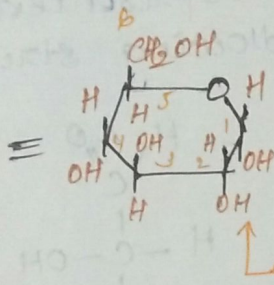 6
CH2OH
H O H
H 5
4 OH H 1
OH 3 2 OH
H OH